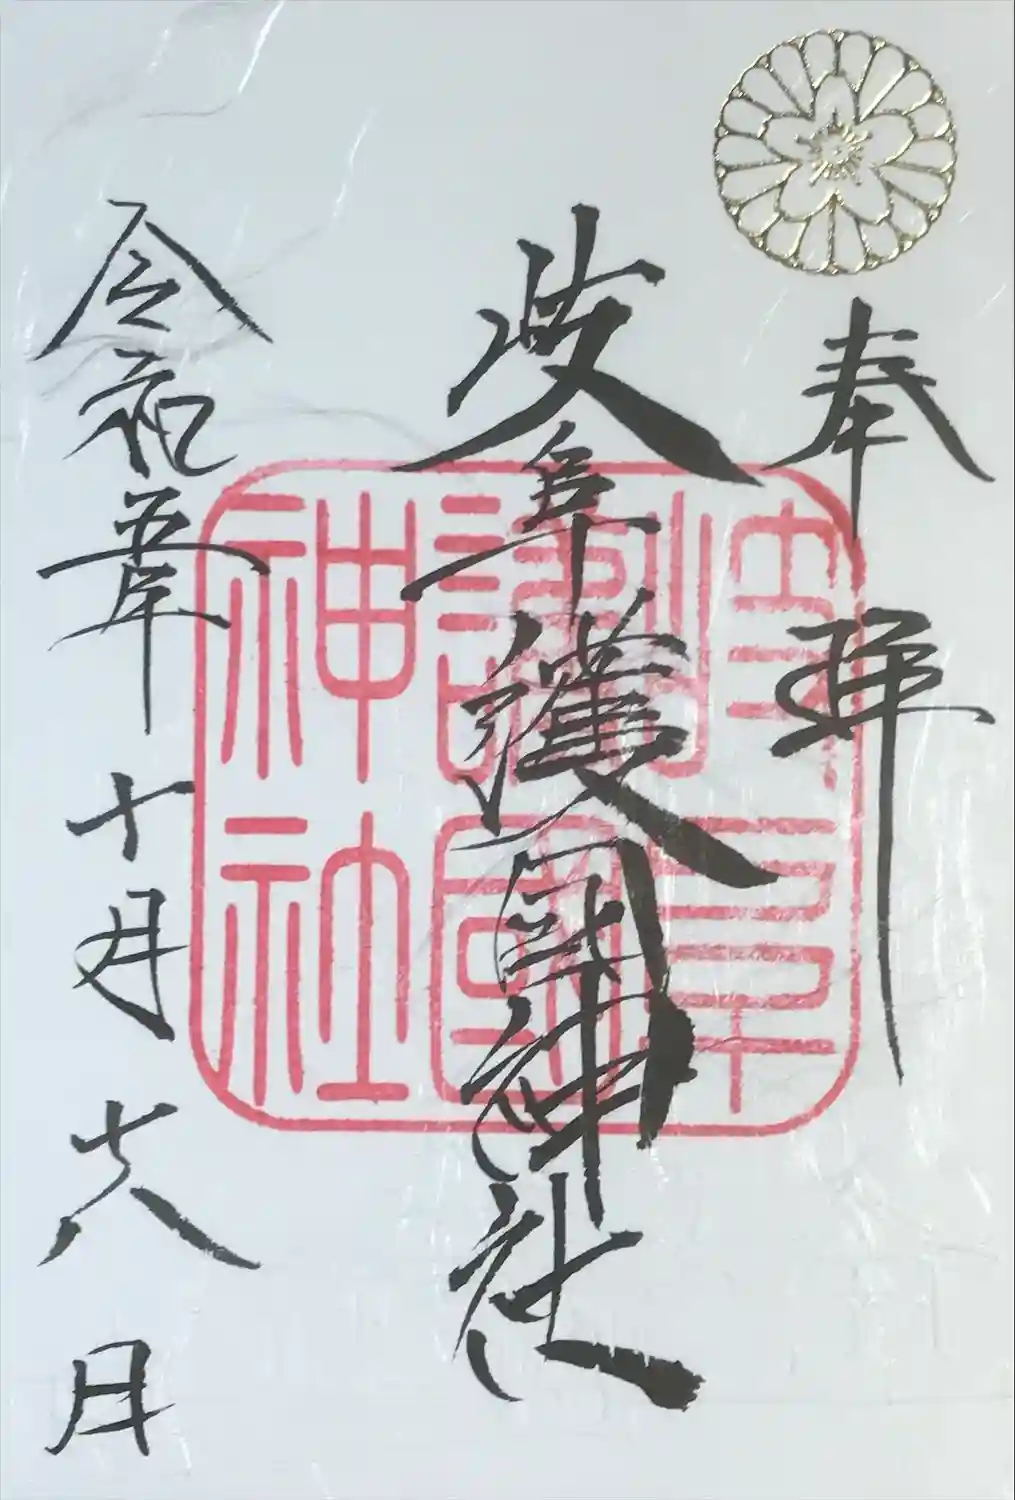 奉拝
岐阜護國神社
岐阜護國神社
令和五年十月十八日